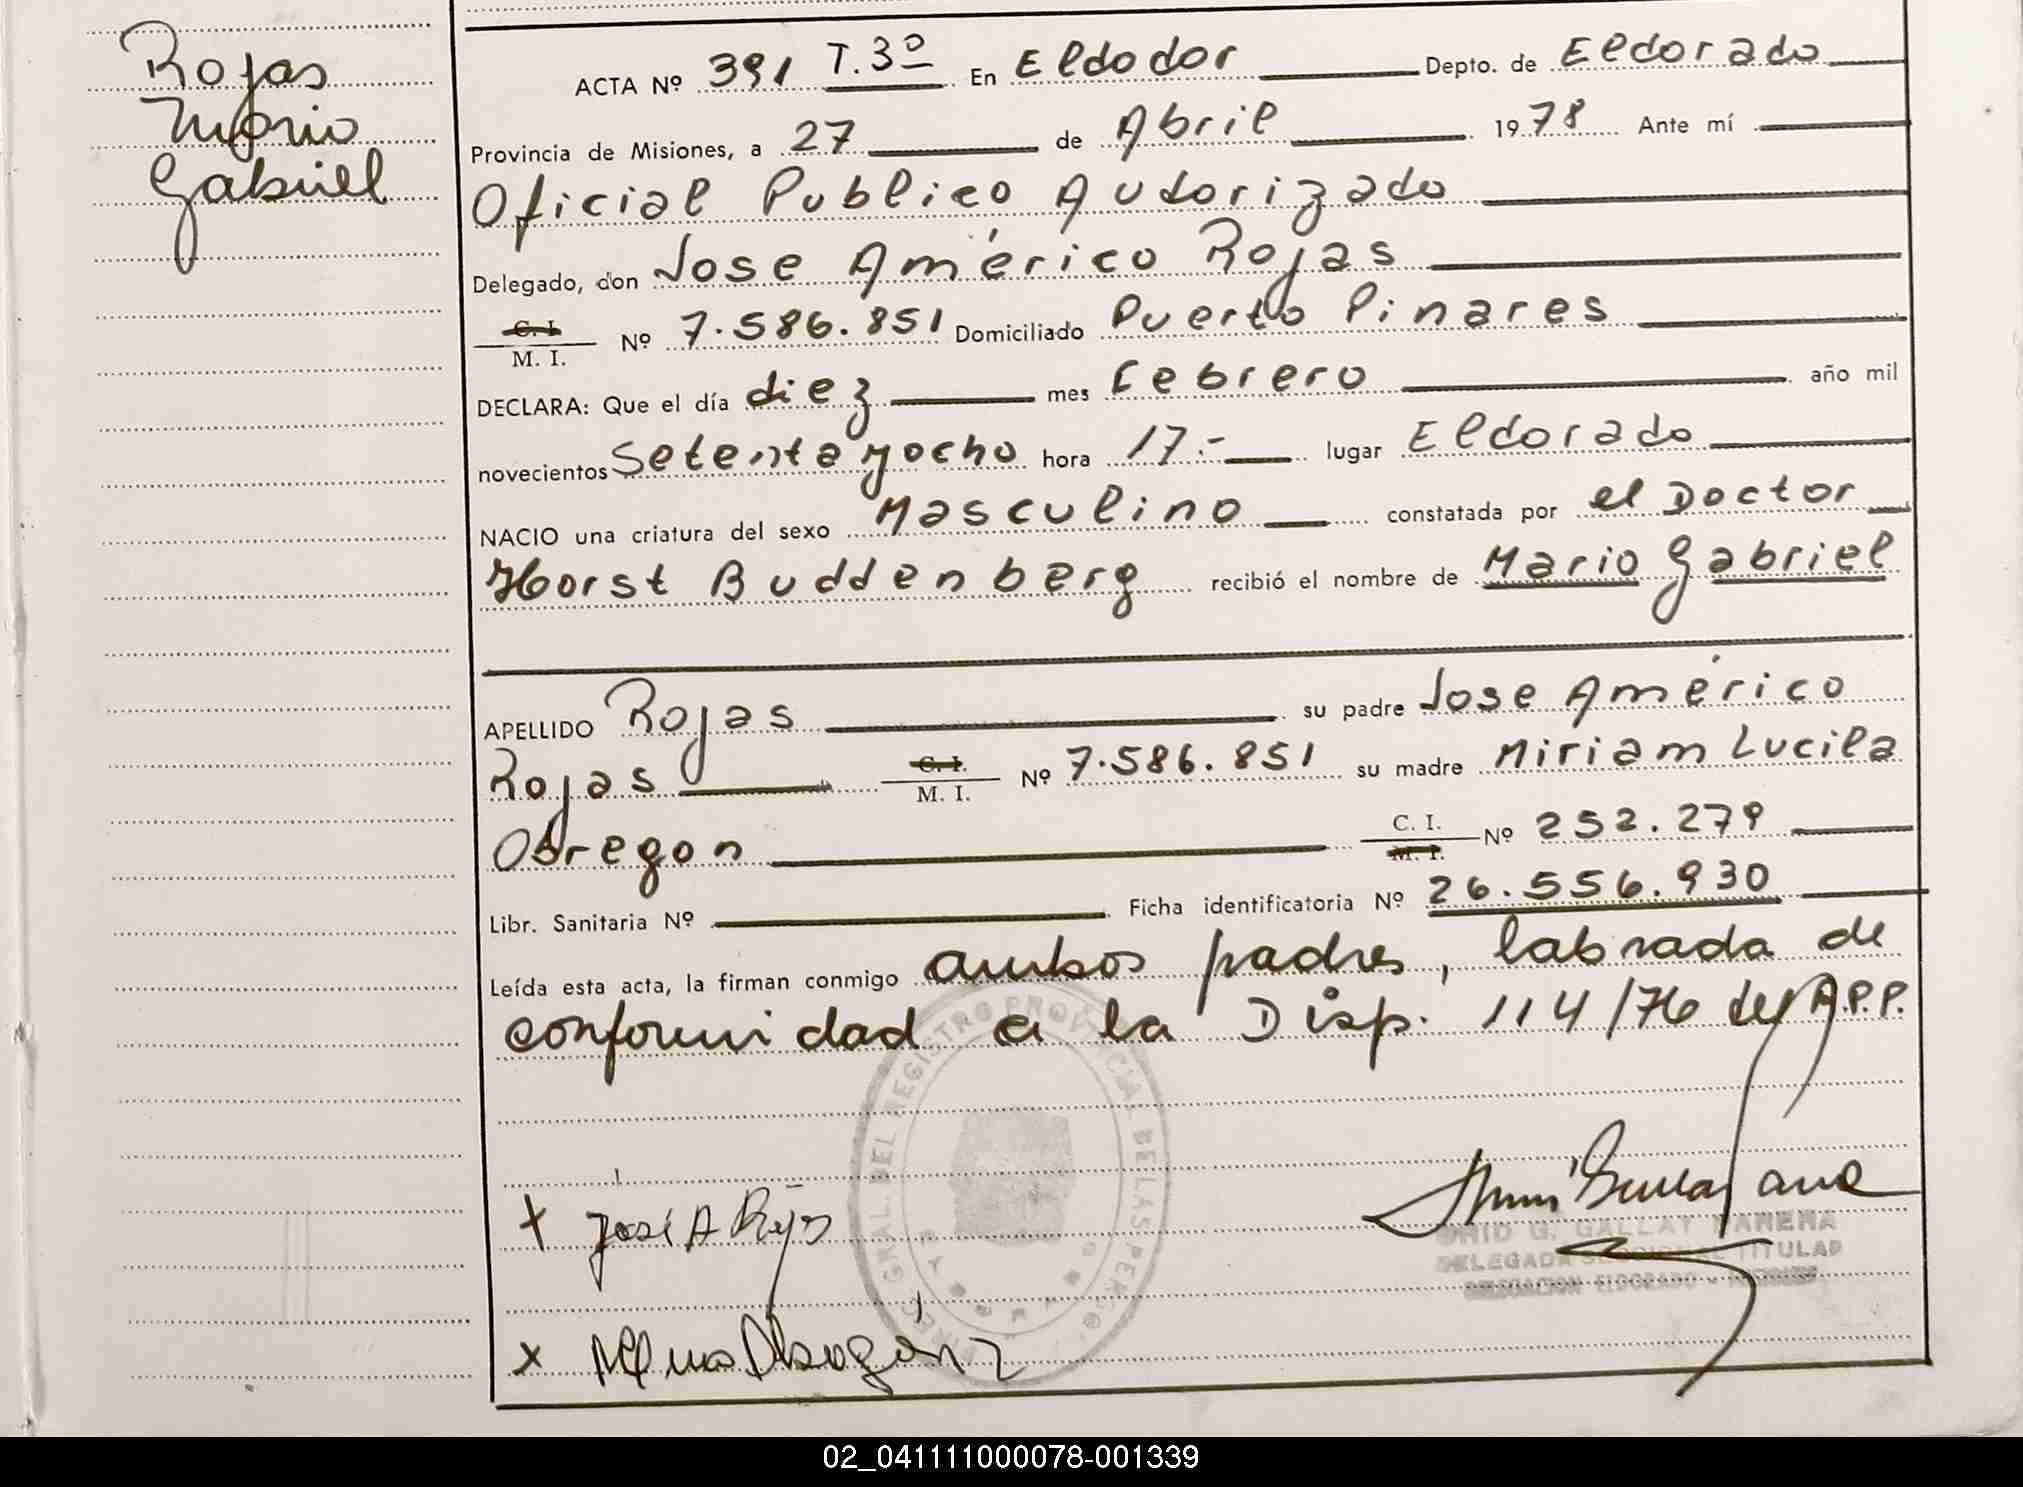 Rojas
Mario
Gabriel
ACTA Nº 391 T. 3º En Eldodor Depto. de Eldorado
Provincia de Misiones, a 27 de Abril 1978 Ante mí
Oficial Publico Autorizado
Delegado, don Jose Américo Rojas
C. I. / M. I. Nº 7.586.851 Domiciliado Puerto Pinares
DECLARA: Que el día diez mes Febrero año mil
novecientos Setenta y ocho hora 17.- lugar Eldorado
NACIO una criatura del sexo Masculino constatada por el Doctor
Horst Buddenberg recibió el nombre de Mario Gabriel
APELLIDO Rojas su padre Jose Américo
Rojas C. I. / M. I. Nº 7.586.851 su madre Miriam Lucila
Obregon C. I. / M. I. Nº 252.279
Libr. Sanitaria Nº Ficha identificatoria Nº 26.556.930
Leída esta acta, la firman conmigo ambos padres, labrada de
conformidad a la Disp. 114/76 del R.P.P.
GRAL. DEL REGISTRO PROVINCIAL DE LAS PERS
x José A Rojas
G. GALLAY
DELEGADA TITULAR
DELEGACION ELDORADO - MISIONES
x
02_041111000078-001339